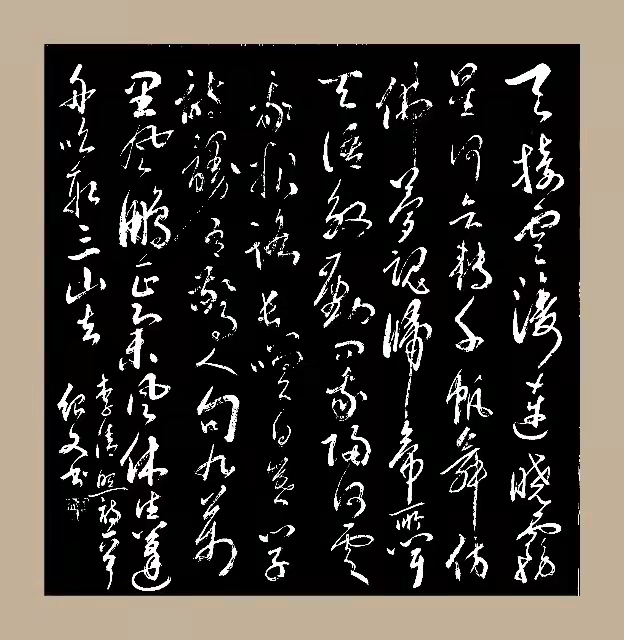 天接雲濤連曉霧
星河欲轉千帆舞仿
佛夢魂歸帝所聞
天語殷勤問我歸何處
我報路長嗟日暮學
詩謾有驚人句九萬
里風鵬正舉風休住蓬
舟吹取三山去
李清照詞
紹文书